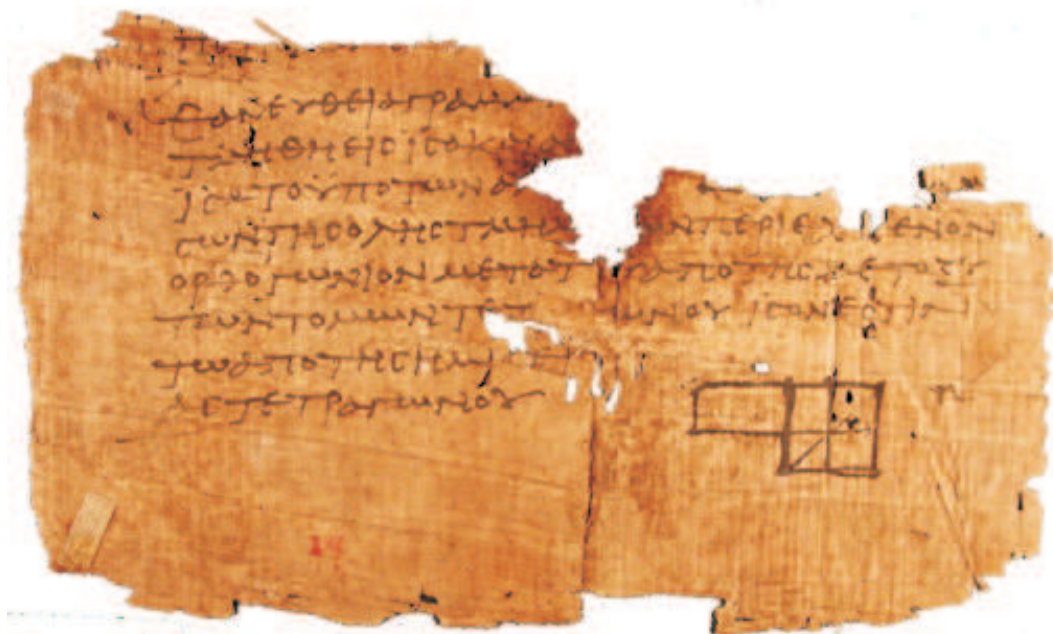 ΕΑΝΕΥΘΕΙΑΓΡΑΜΜ
ΤΜΗΘΗΕΙϹΙϹΑΚΑΙΑ
ΙϹΑΤΟΥΠΟΤΩΝΑ
ϹΩΝΤΗϹΟΛΗϹΤΜΗΜ ΩΝΠΕΡΙΕΧΟΜΕΝΟΝ
ΟΡΘΟΓΩΝΙΟΝΜΕΤΟΤ ΑΠΟΤΗϹΜΕΤΟΞΥ
ΤΩΝΤΟΜΩΝΤΕΤ ΩΝΟΥΙϹΟΝΕϹΤΙΝ
ΤΩΑΠΟΤΗϹΗΜΙϹΕΙ
ΤΕΤΡΑΓΩΝΟΥ